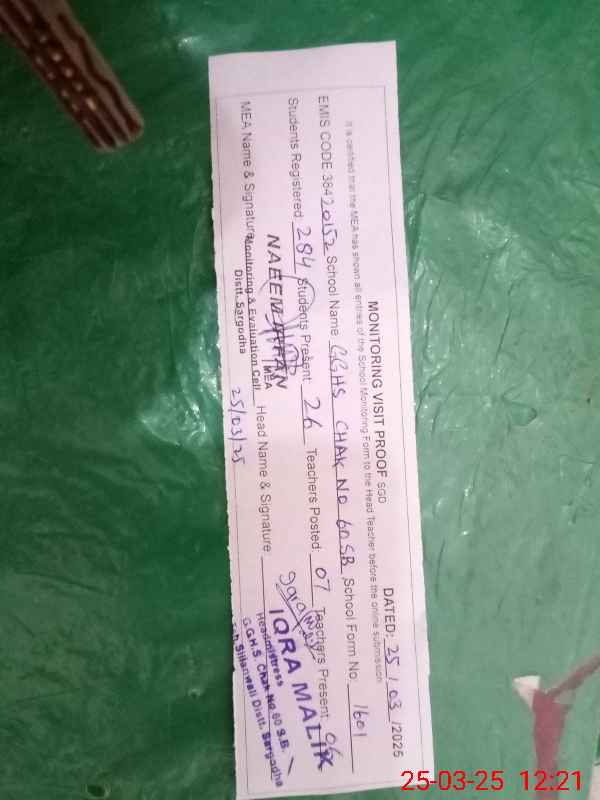 MONITORING VISIT PROOF SGD
DATED: 25 / 03 /2025
It is certified that the MEA has shown all entries of the School Monitoring Form to the Head Teacher before the online submission
EMIS CODE 38420152 School Name GGHS CHAK NO 60 SB School Form No: 1601
Students Registered: 284 Students Present: 26 Teachers Posted: 07 Teachers Present: 06
MEA Name & Signature Head Name & Signature:
NAEEM
MEA
Monitoring & Evaluation Cell
Distt. Sargodha
25/03/25
Iqra
IQRA MALIK
Headmistress
G.G.H.S. Chak No 60 S.B.
Sillanwali Distt. Sargodha
25-03-25 12:21